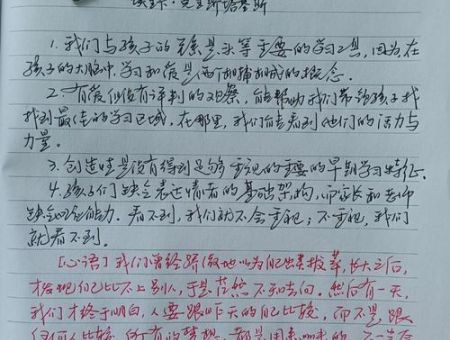 1. 我们与孩子的关系是头等重要的学习工具,因为在
孩子的大脑中,学习和爱是两个相辅相成的概念。
2. 有爱但没有评判的观察,能帮助我们带领孩子找
找到最佳的学习区域,在哪里,我们能看到他们的活力与
力量。
3. 创造性是没有得到足够重视的重要的早期学习特征。
4. 孩子们缺乏表达情音的基础架构,而家长和老师
缺乏能力. 看不到,我们就不会重视;不重视,我们
就看不到。
[心语] 我们曾经骄傲地以为自己出类拔萃,长大之后,
才发现自己比不上别人,于是茫然不知去向,然后有一天,
我们才终于明白,人要跟昨天的自己比较,而不是跟
任何人比较